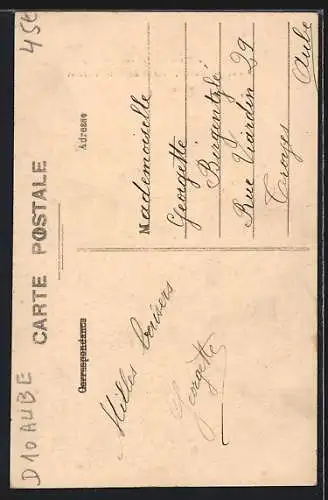 45€
D10 AUBE
CARTE POSTALE
Correspondance
Adresse
Milles baisers
Georgette
Mademoiselle
Georgette
Rue Viardin 29
Troyes
Aube